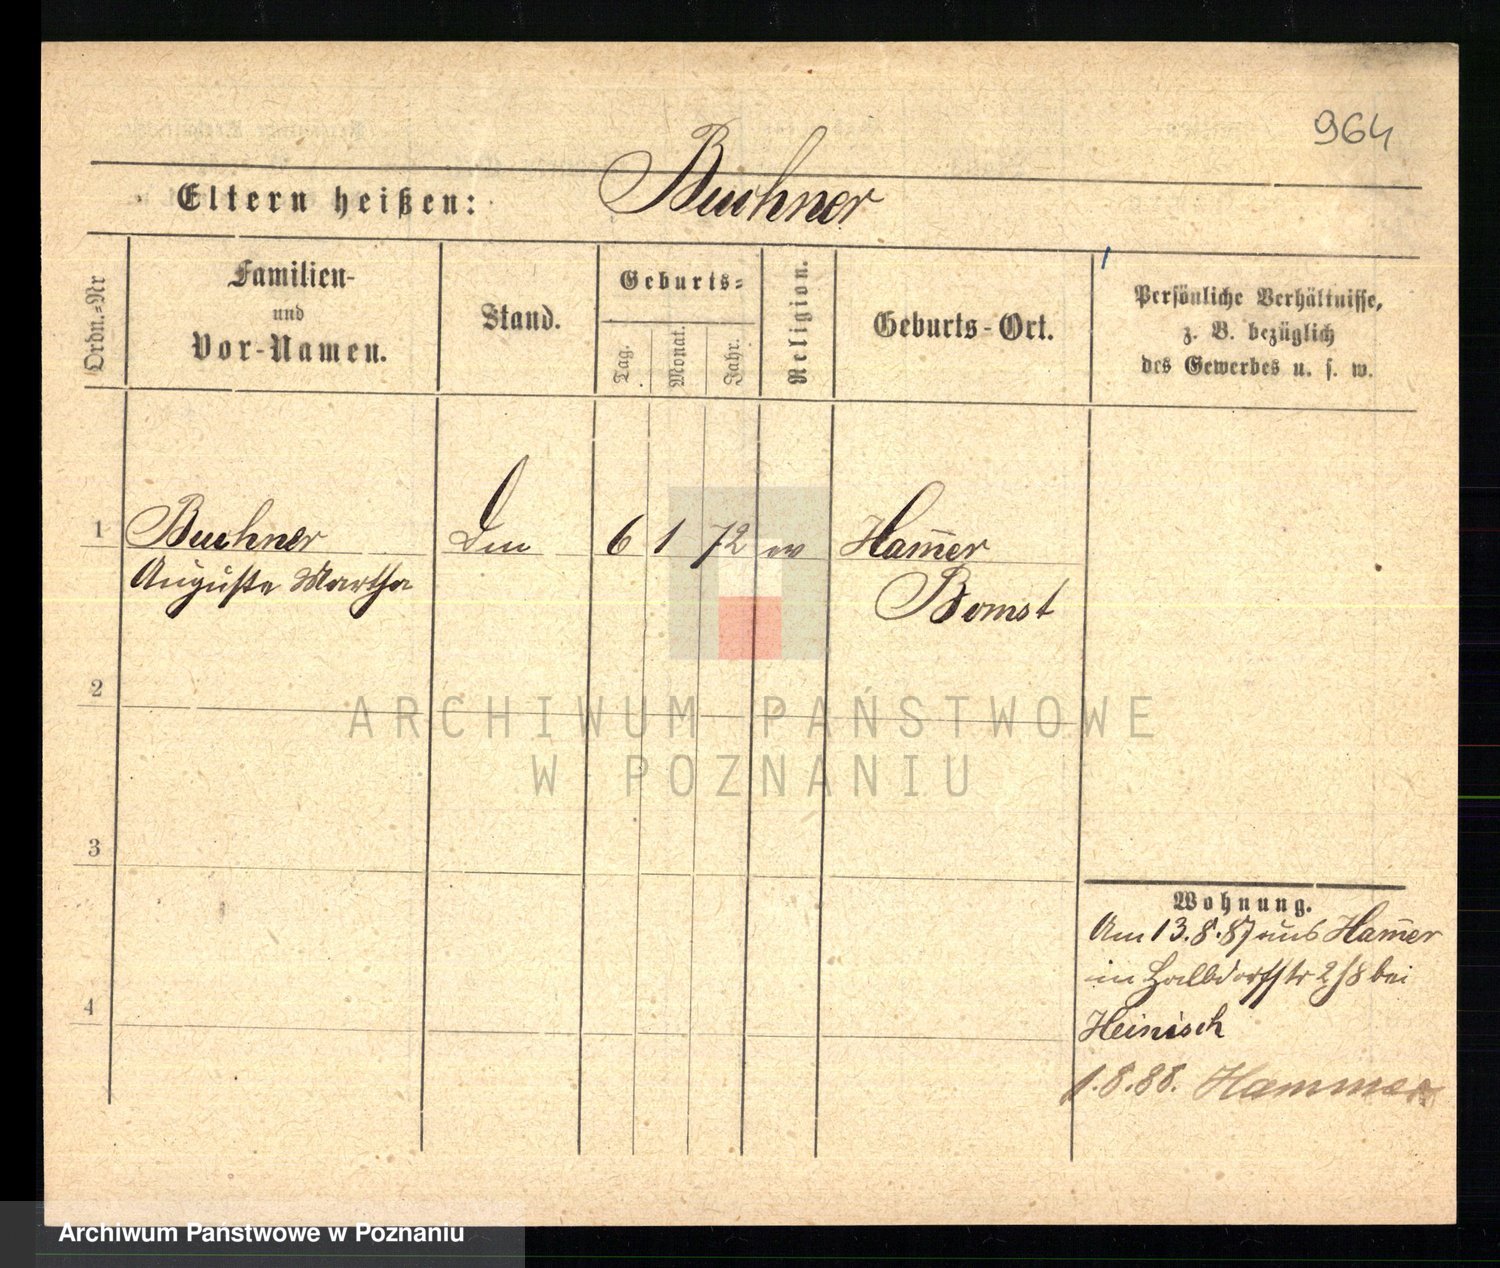 964
Eltern heißen: Buchner
Ordn.=Nr
Familien-
und
Vor-Namen.
Stand.
Geburts=
Tag.
Monat.
Jahr.
Religion.
Geburts-Ort.
Persönliche Verhältnisse,
z. B. bezüglich
des Gewerbes u. s. w.
1 Buchner 6 1 72 ev Ham̅er
Auguste Martha Bomst
2
3
4
Wohnung.
Am 13.8.87 aus Ham̅er
in Halbdorfstr 2/8 bei
Heinisch
1.8.88. Hammer
ARCHIWUM PAŃSTWOWE
W POZNANIU
Archiwum Państwowe w Poznaniu